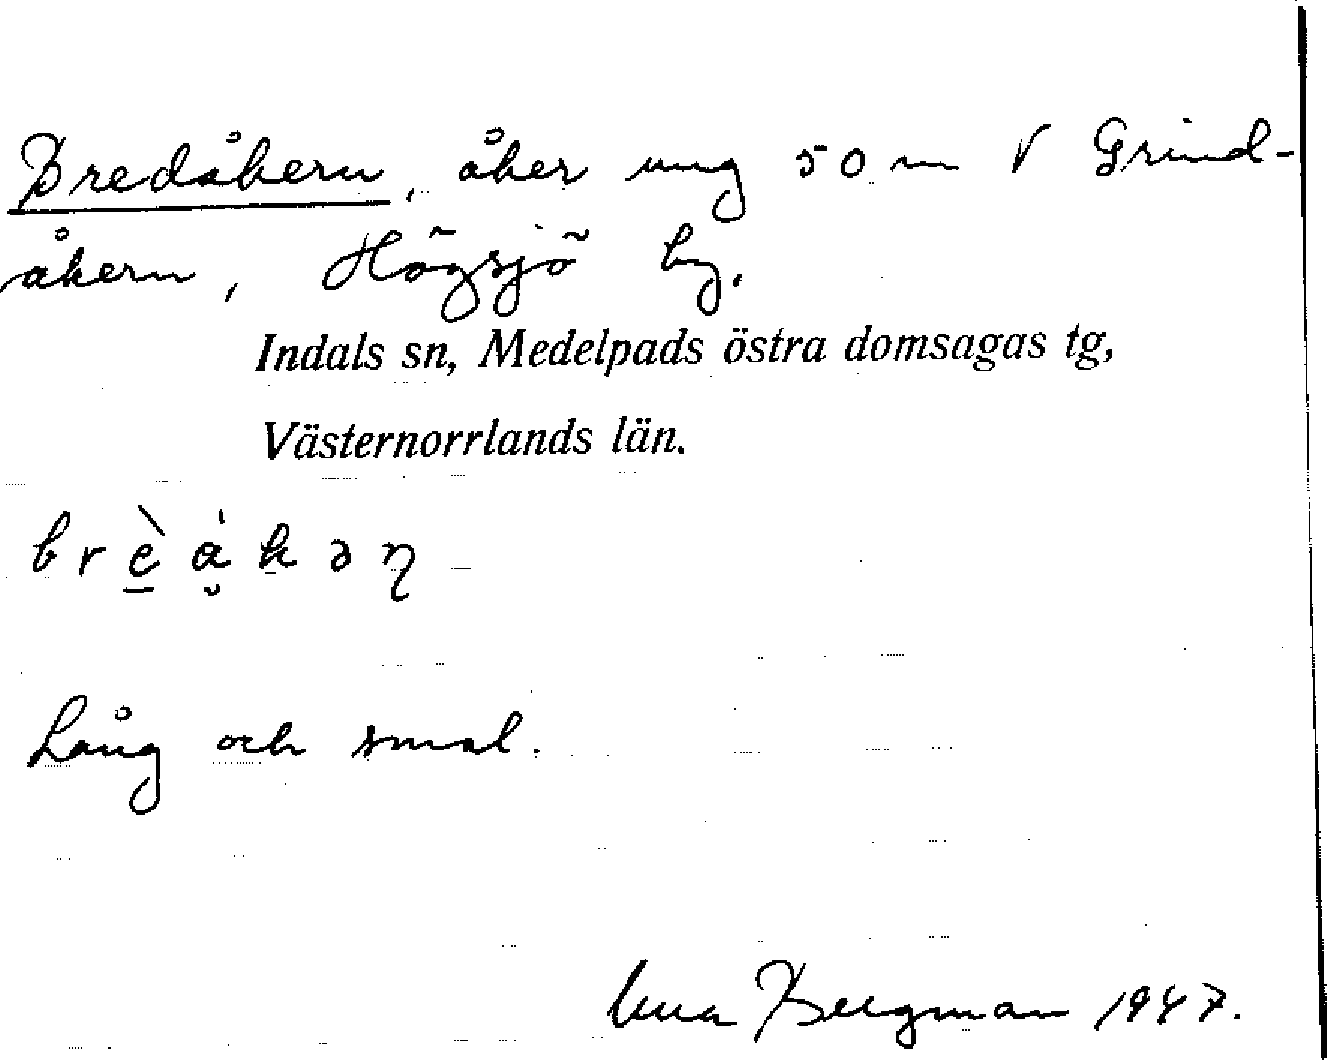 Bredåkern, åker ung 50 m V Grind-
åkern, Högsjö by.
Indals sn, Medelpads östra domsagas tg,
Västernorrlands län.
Lång och smal.
Bergman 1947.